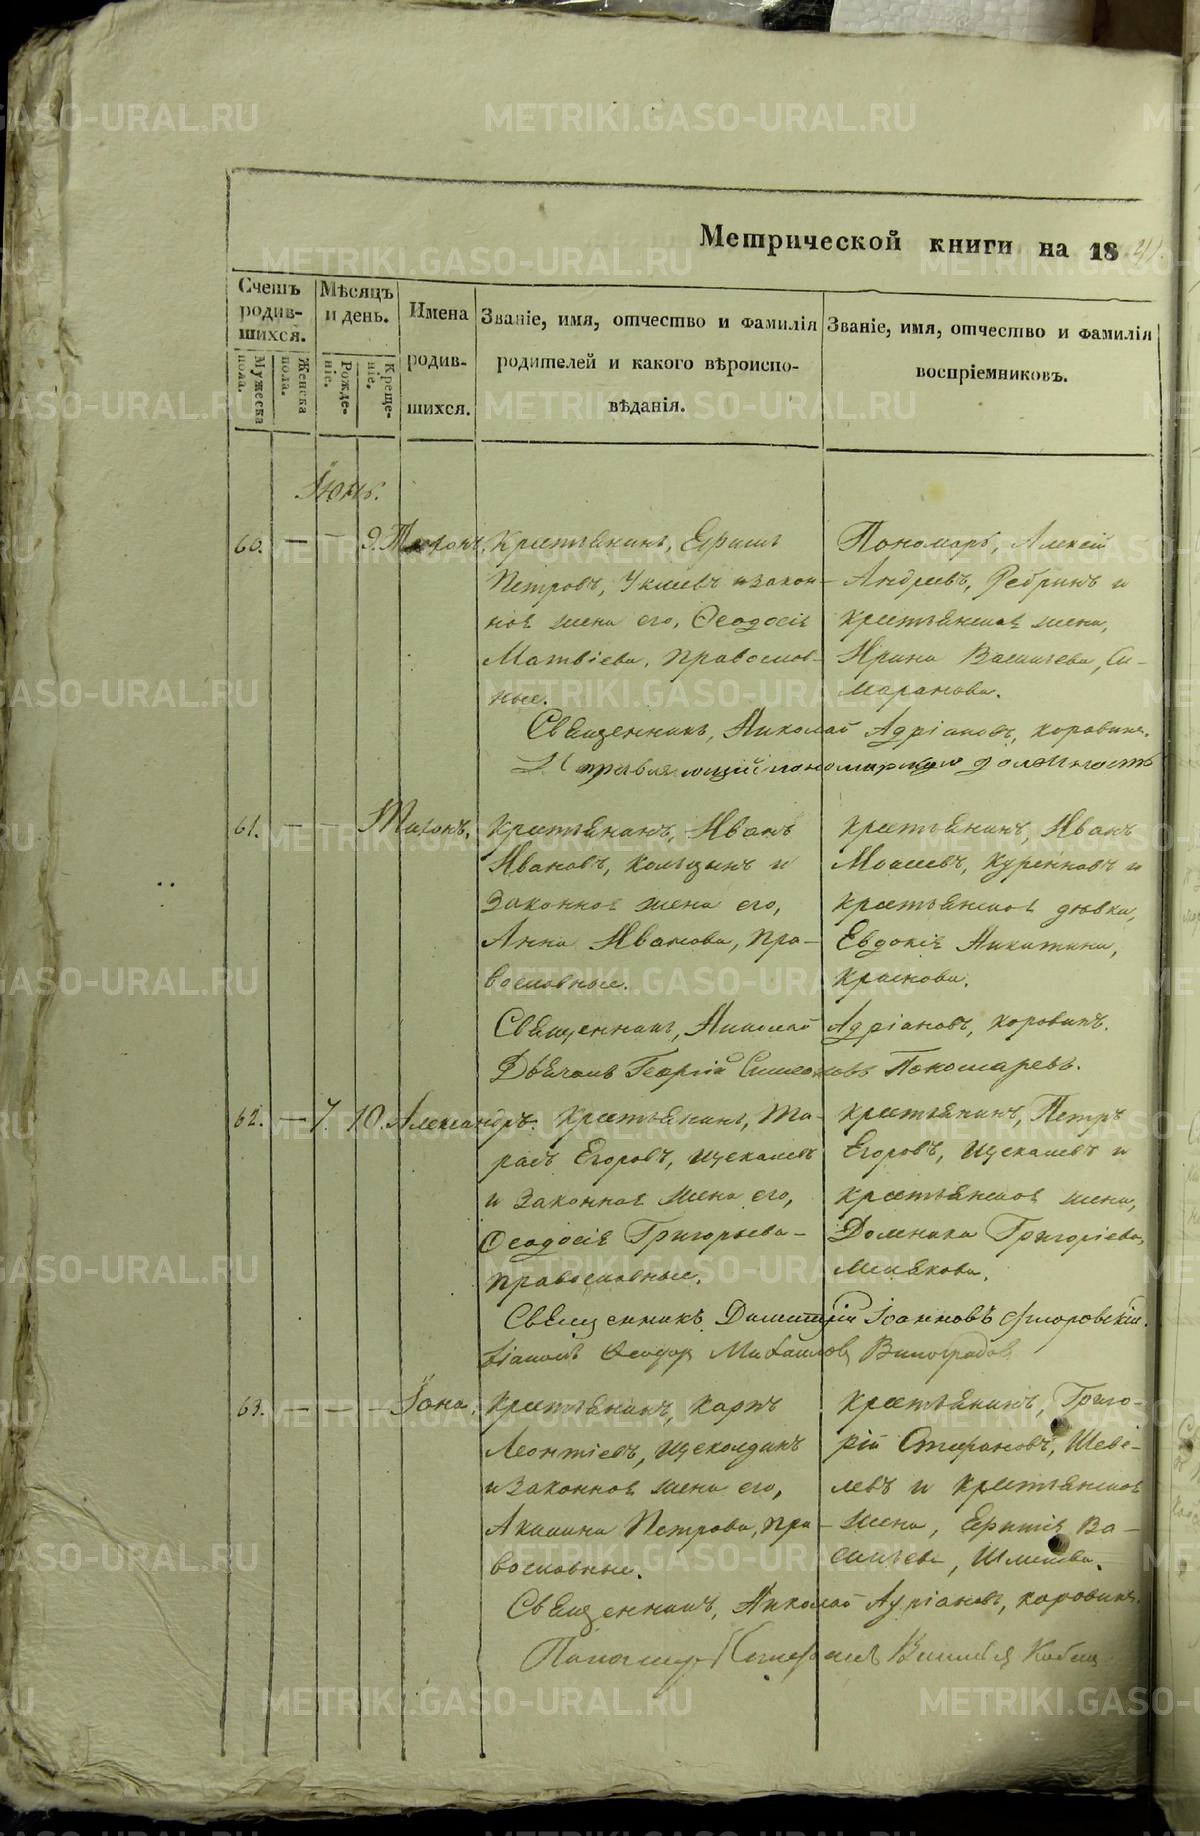 Метрической книги на 1841.
Счетъ родив-шихся.
Мужеска пола.
Женска пола.
Мѣсяцъ и день.
Рожде-ніе.
Креще-ніе.
Имена
родив-
шихся.
Званіе, имя, отчество и фамилія
родителей и какого вѣроиспо-
вѣданія.
Званіе, имя, отчество и фамилія
воспріемниковъ.
Іюнь.
60. — — 9. Тихонъ.
Крестьянинъ, Ефимъ
Петровъ, и закон-
ная жена его, Ѳеодосія
Матвіева, православ-
ные.
Пономарь, Алексій
Андреевъ, Ребринъ и
крестьянская жена,
Ирина Васильева, Си-
Священникъ, Николай Адріановъ, Коровинъ.
Исправляющій пономарскую должность
61. — — Тихонъ.
Крестьянинъ, Иванъ
Ивановъ, и
законная жена его,
Анна Иванова, пра-
вославные.
Крестьянинъ, Иванъ
Моисеевъ, Куренновъ и
крестьянская дѣвка,
Евдокія Никитина,
Краснова.
Священникъ, Николай Адріановъ, Коровинъ.
Дьячокъ Георгій Симеоновъ Пономаревъ.
62. — 7. 10. Александръ.
Крестьянинъ, Та-
расъ Егоровъ, Щекалевъ
и законная жена его,
Ѳеодосія Григорьева —
православные.
Крестьянинъ, Петръ
Егоровъ, Щекалевъ и
крестьянская жена,
Домника Григоріева,
Священникъ Димитрій Іоанновъ Флоровскій.
Діаконъ Ѳеодоръ Михайловъ Виноградовъ
63. — — — Іона.
Крестьянинъ, Карпъ
Леонтіевъ, Щеколдинъ
и законная жена его,
Акилина Петрова, пра-
вославные.
Крестьянинъ, Григо-
рій Стефановъ, Шеве-
левъ и крестьянская
жена, Ва-
сильева,
Священникъ, Николай Адріановъ, Коровинъ.
Пономарь
METRIKI.GASO-URAL.RU